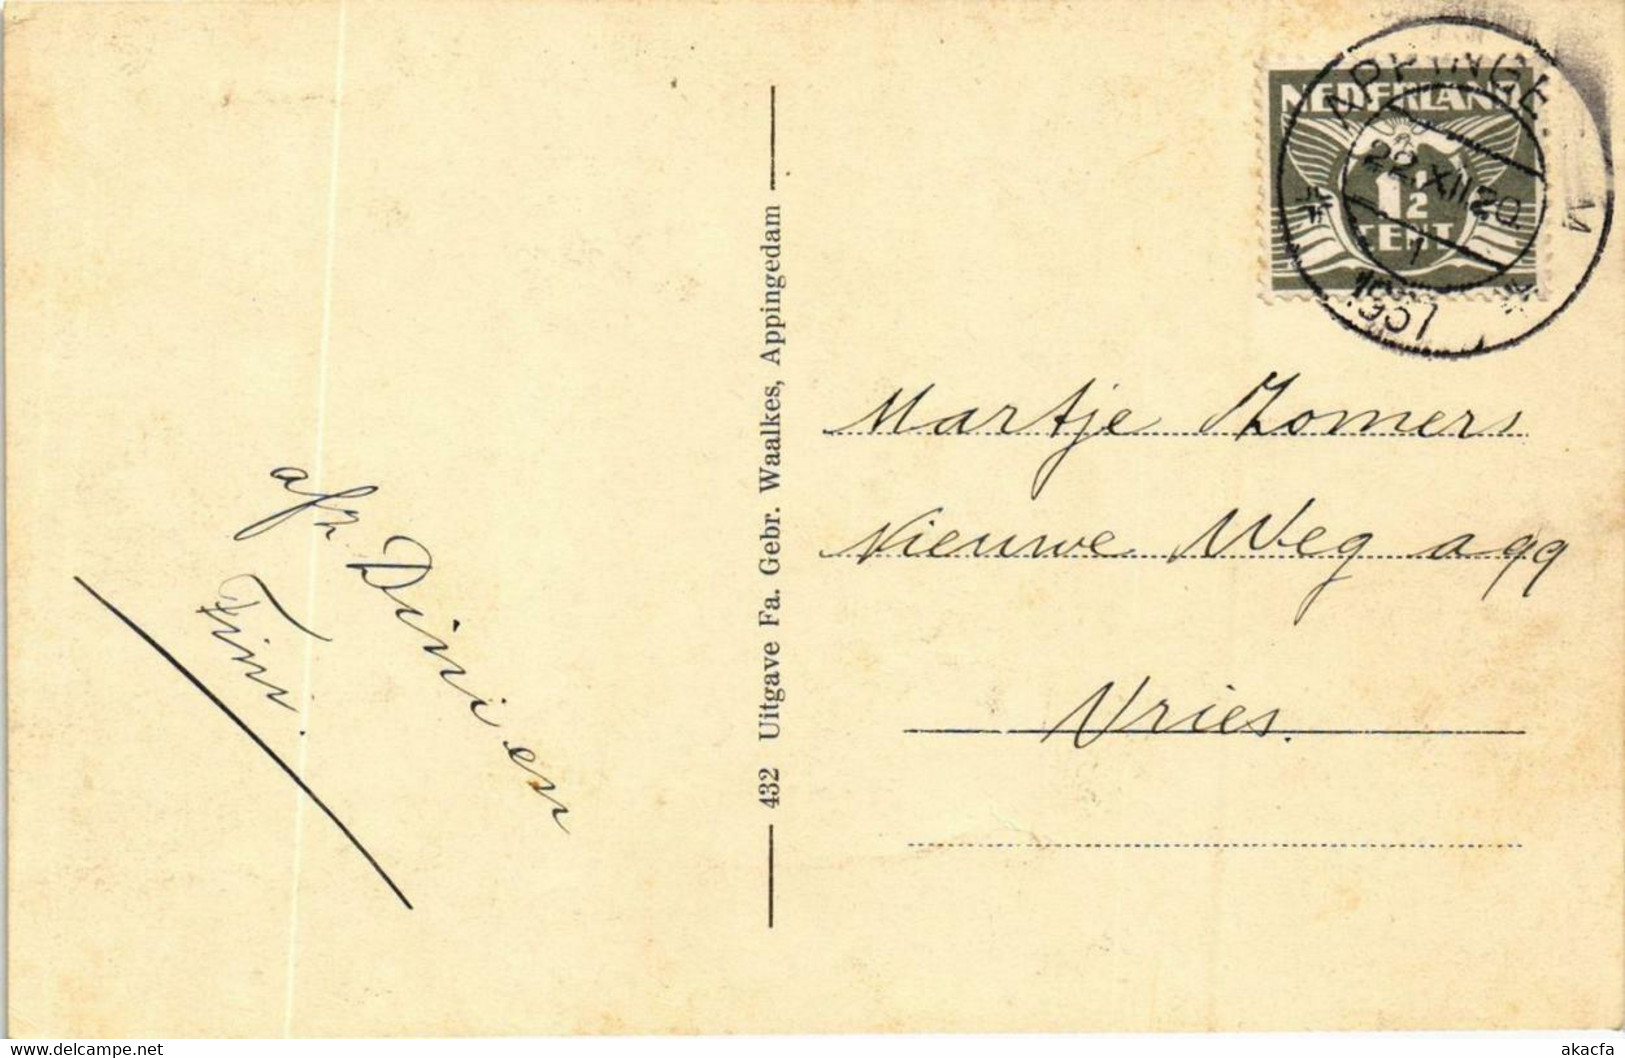 NEDERLAND
1½
CENT
APPINGE
22.XII.20
1
1937
Martje Zomers
Nieuwe Weg a 99
Vries.
432 Uitgave Fa. Gebr. Waalkes, Appingedam
afz. Dini en
Fini.
akacfa